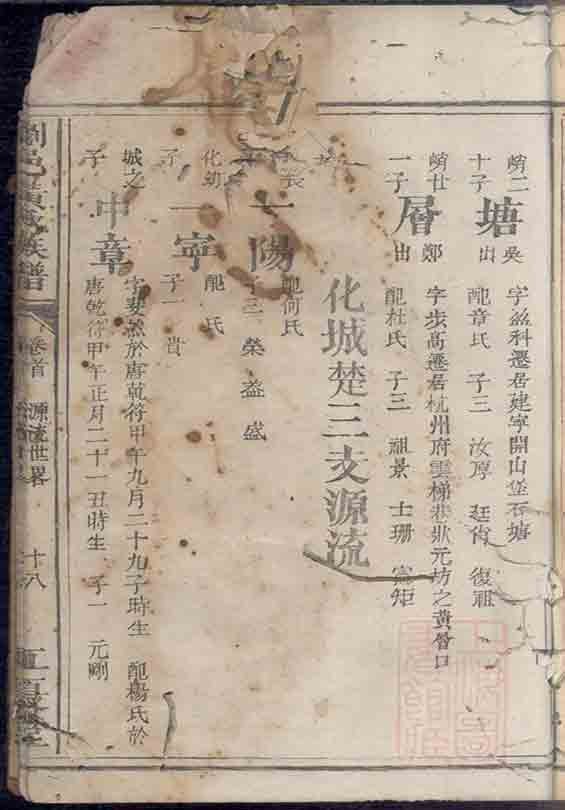 峭二
十子
塘
吳
出
字盆科遷居建寧開山堡石塘
配章氏 子三 汝厚 廷 復祖
峭廿
一子
層
鄭
出
字步高遷居杭州府雲梯巷狀元坊之黃層口
配杜氏 子三 祖景 士珊 矩
化城楚三支源流
長
一陽
配何氏
子三 榮 益 盛
化幼
子
一寧
配 氏
子一 貴
城之
子
中章
字斐然於唐乾符甲午九月二十九子時生 配楊氏於
唐乾符甲午正月二十一丑時生 子一 元剛
瀏邑黃氏族譜
卷首 源流世畧
十八